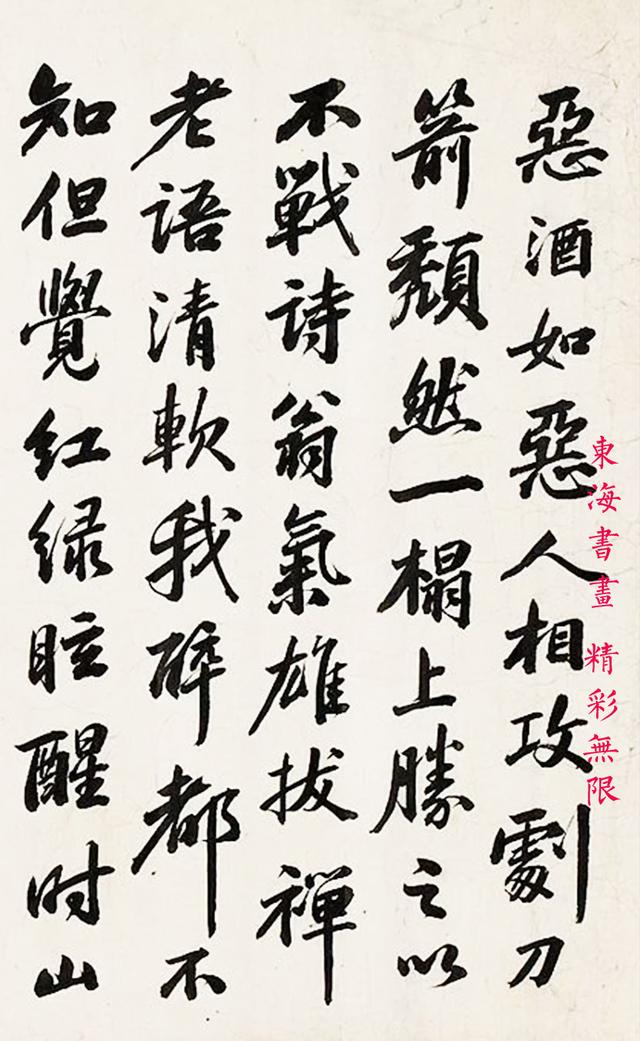 惡酒如惡人相攻劇刀
箭頹然一榻上勝之以
不戰詩翁氣雄拔禪
老語清軟我醉都不
知但覺红绿眩醒时山
東海書畫 精彩無限